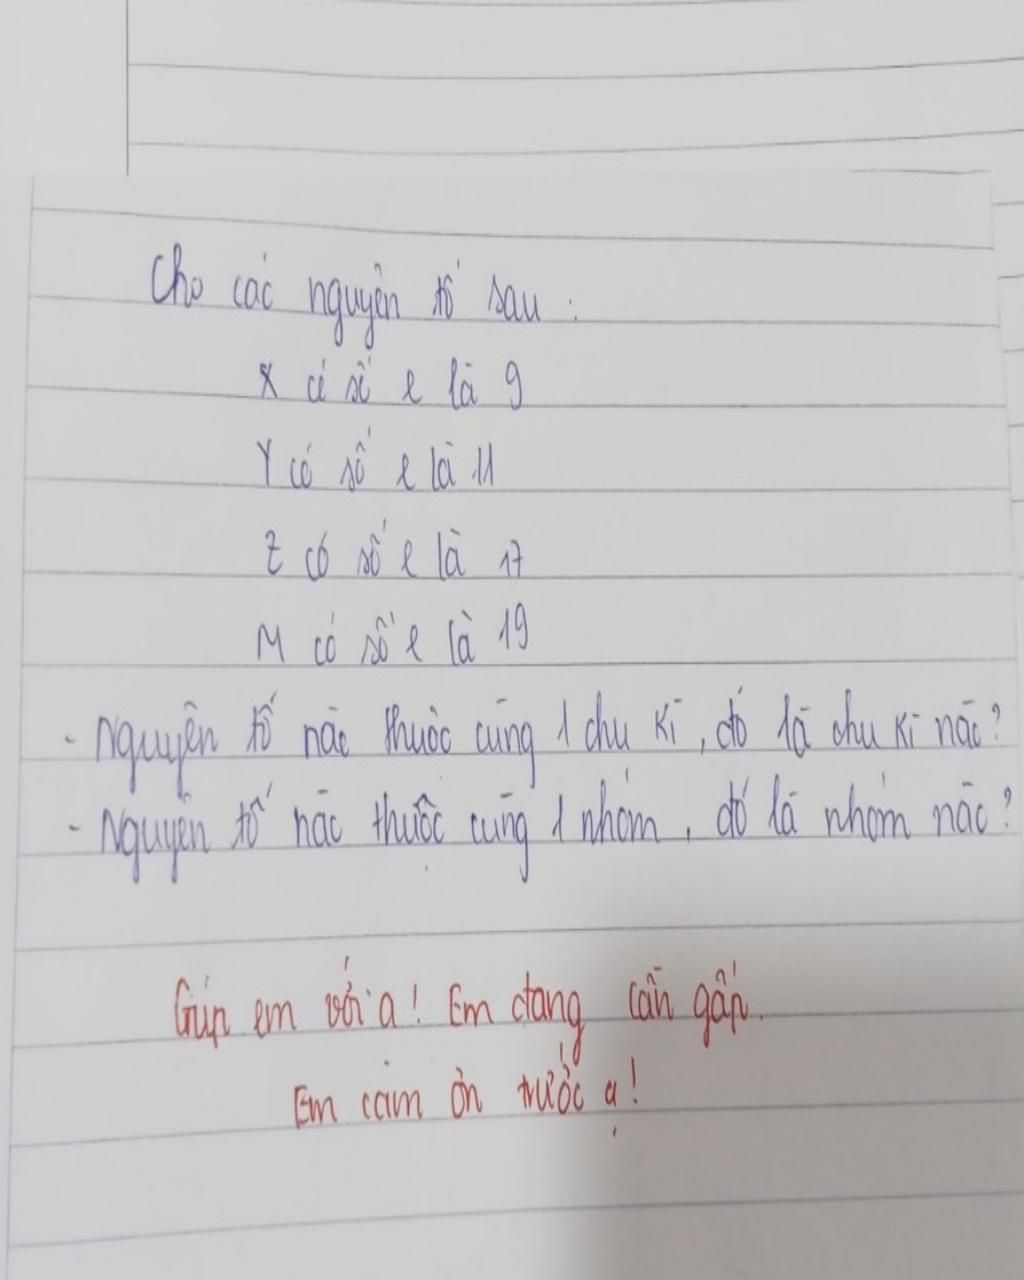 Cho các nguyên tố sau :
X có số e là 9
Y có số e là 11
Z có số e là 17
M có số e là 19
- Nguyên tố nào thuộc cùng 1 chu kì, đó là chu kì nào?
- Nguyên tố nào thuộc cùng 1 nhóm, đó là nhóm nào?
Giúp em với ạ! Em đang cần gấp.
Em cảm ơn trước ạ!